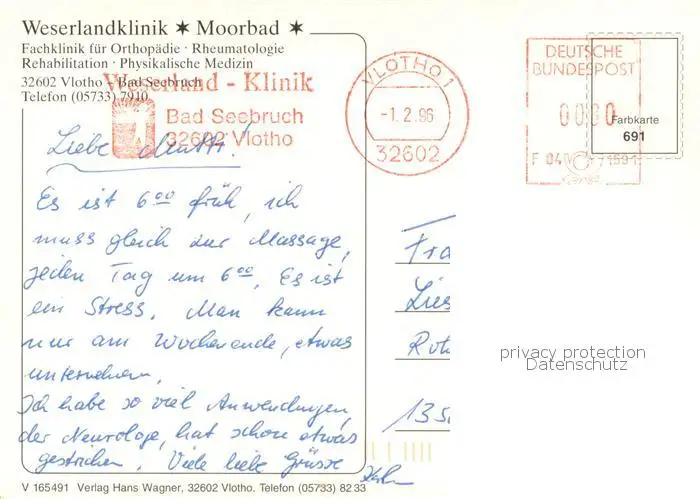 Weserlandklinik ✶ Moorbad ✶
Fachklinik für Orthopädie · Rheumatologie
Rehabilitation · Physikalische Medizin
32602 Vlotho · Bad Seebruch
Telefon (05733) 7910
Weserland - Klinik
Bad Seebruch
32602 Vlotho
VLOTHO 1
-1.2.96
32602
DEUTSCHE
BUNDESPOST
0080
Farbkarte
691
Liebe Mutti!
Es ist 6⁰⁰ früh, ich
muss gleich zur Massage,
jeden Tag um 6⁰⁰. Es ist
ein Stress. Man kann
nur am Wochenende, etwas
unternehmen.
Ich habe so viel Anwendungen,
der Neurologe, hat schon etwas
gestrichen. Viele liebe Grüsse
Fra
Lies
Rot
135
privacy protection
Datenschutz
V 165491 Verlag Hans Wagner, 32602 Vlotho. Telefon (05733) 82 33